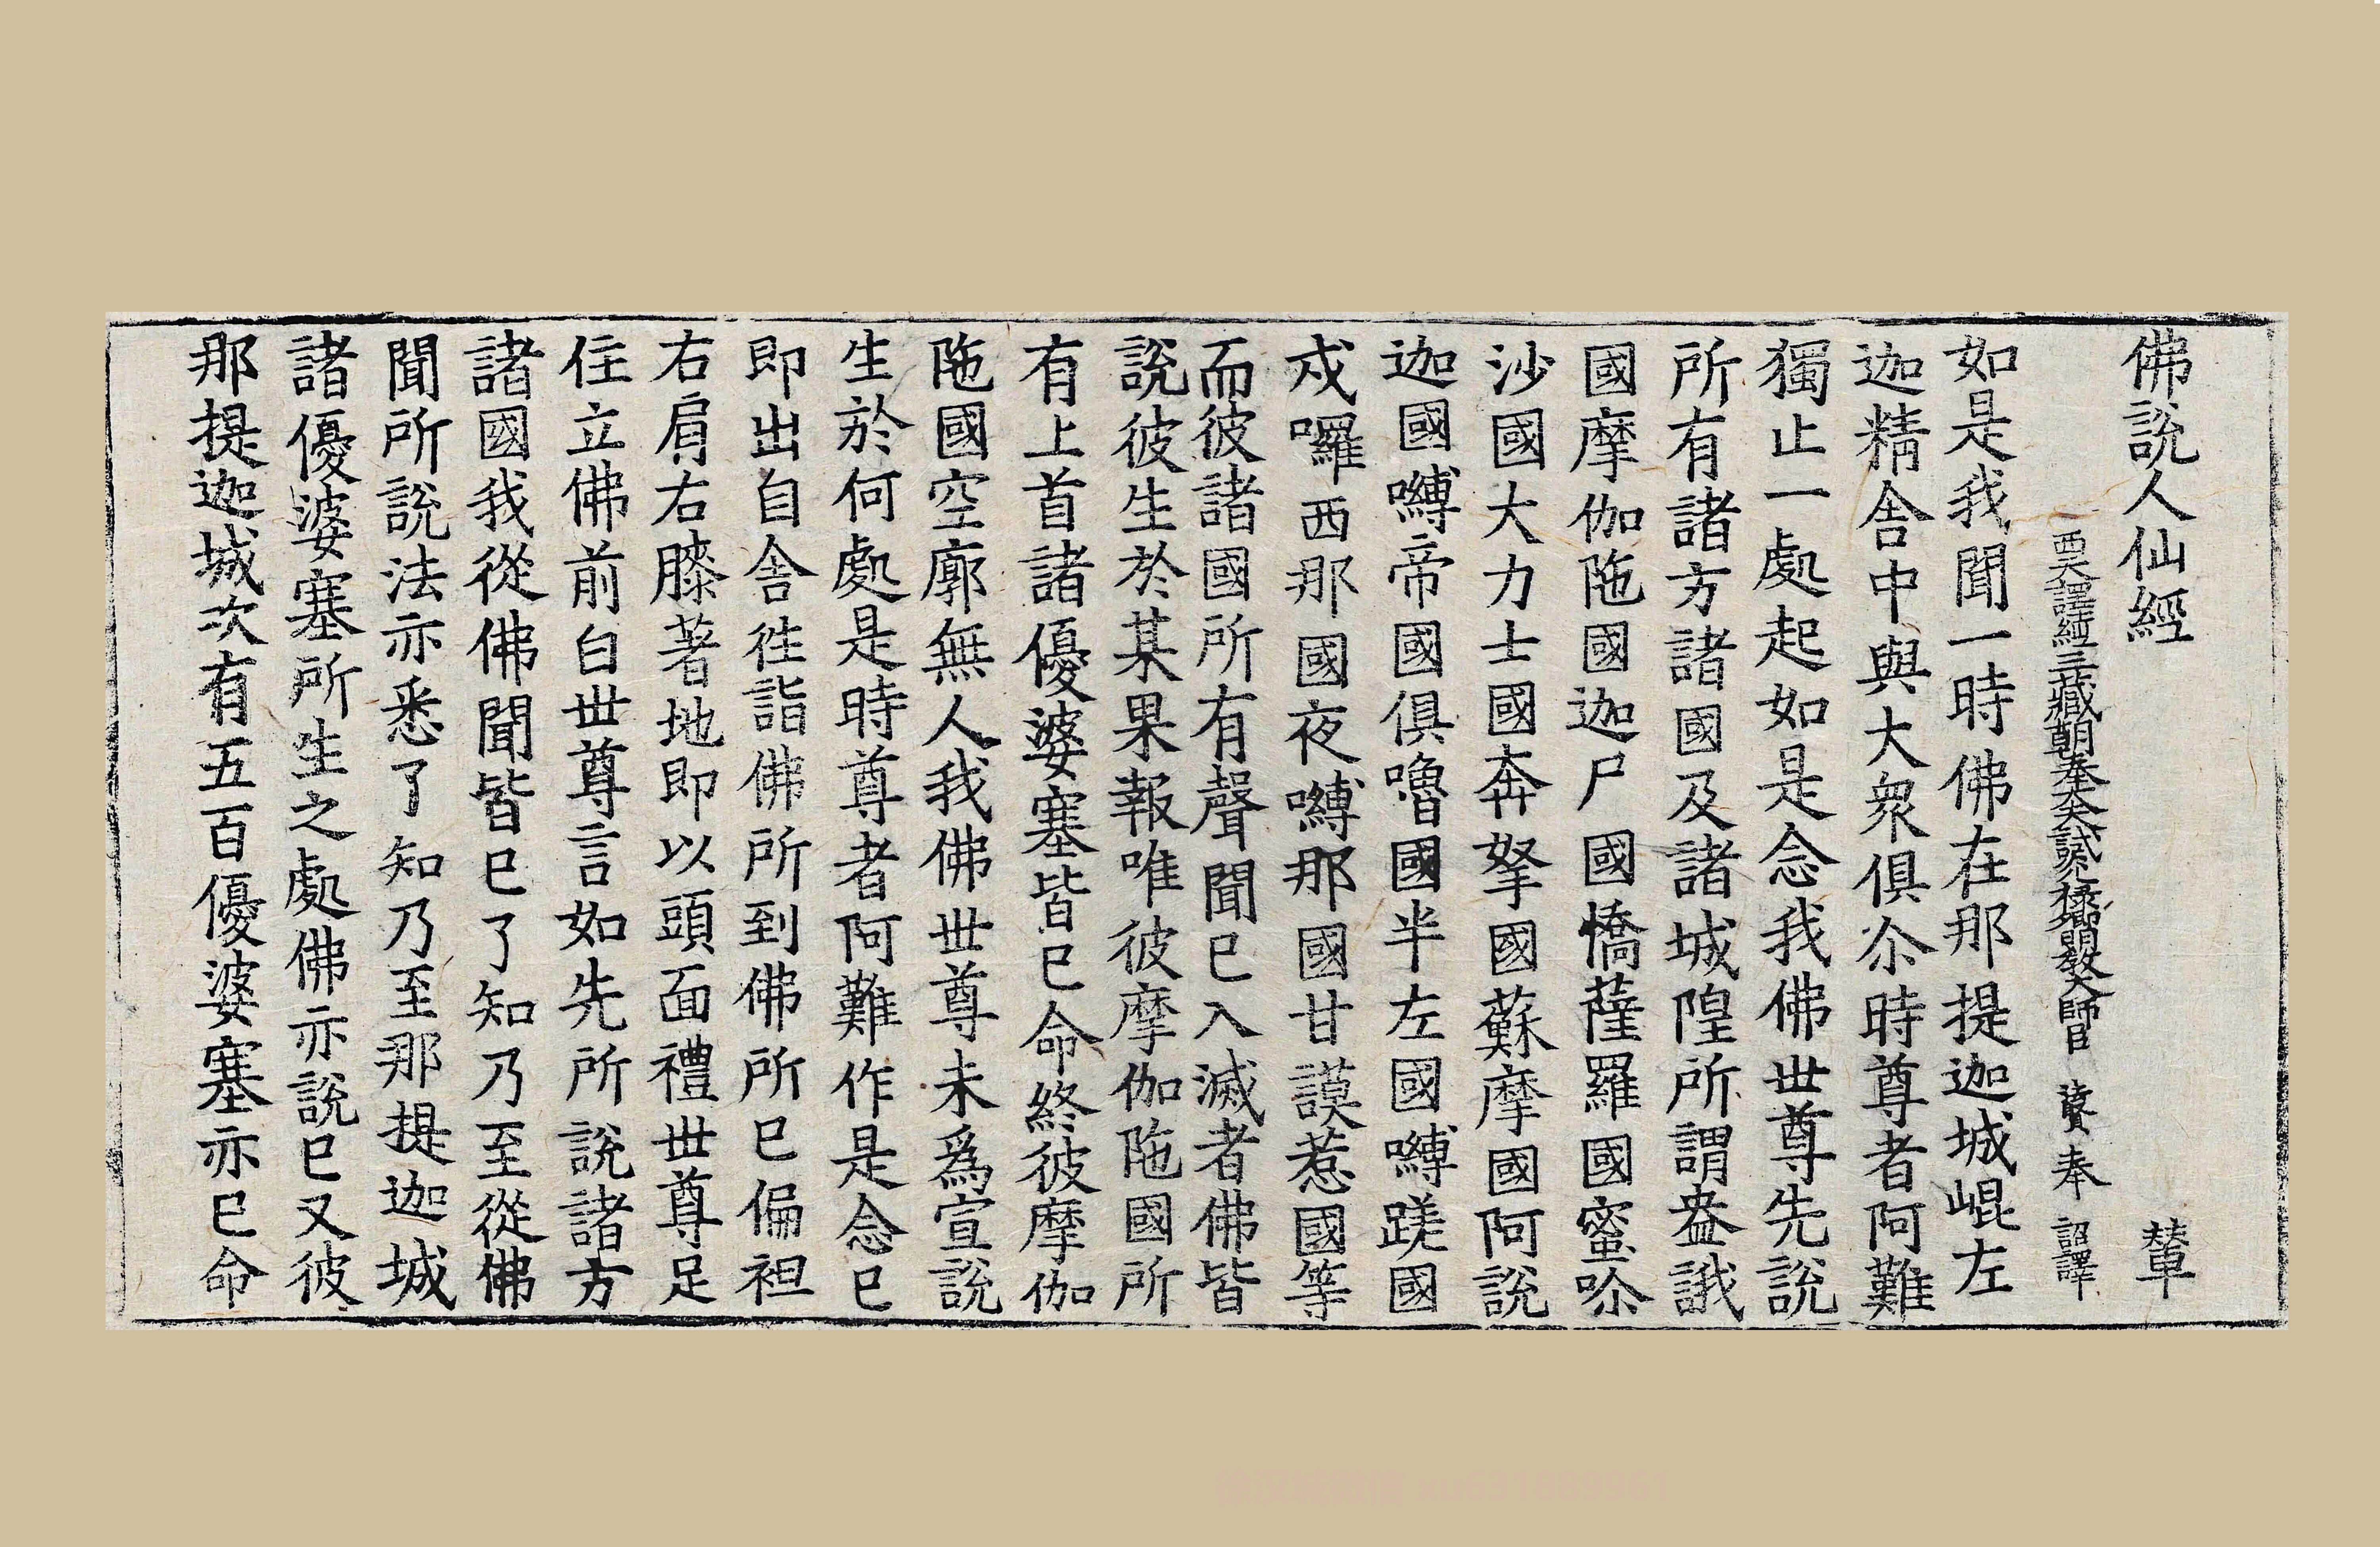 佛說人仙經 輦
西天譯經三藏朝奉大夫試光祿卿明教大師臣 法賢奉 詔譯
如是我聞一時佛在那提迦城崐左
迦精舍中與大衆俱尒時尊者阿難
獨止一處起如是念我佛世尊先說
所有諸方諸國及諸城隍所謂盎誐
國摩伽陁國迦尸國憍薩羅國蜜㖿
沙國大力士國奔拏國蘇摩國阿說
迦國嚩帝國俱嚕國半左國嚩蹉國
戍囉西那國夜嚩那國甘謨惹國等
而彼諸國所有聲聞已入滅者佛皆
說彼生於某果報唯彼摩伽陁國所
有上首諸優婆塞皆已命終彼摩伽
陁國空廓無人我佛世尊未爲宣說
生於何處是時尊者阿難作是念已
即出自舍徃詣佛所到佛所已偏袒
右肩右膝著地即以頭面禮世尊足
住立佛前白世尊言如先所說諸方
諸國我從佛聞皆已了知乃至從佛
聞所說法亦悉了知乃至那提迦城
諸優婆塞所生之處佛亦說已又彼
那提迦城次有五百優婆塞亦已命